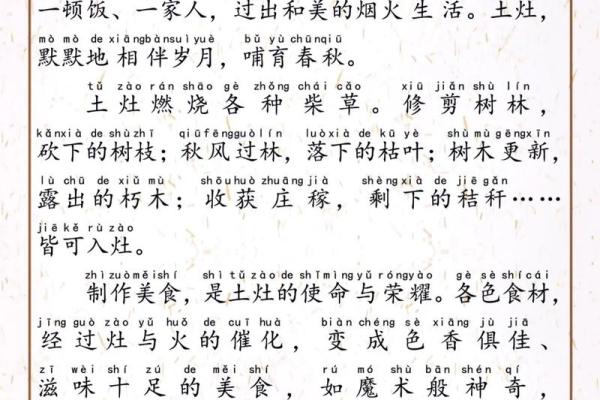 一顿饭、一家人，过出和美的烟火生活。土灶，
mò mò de xiāngbànsuìyuè bǔ yù chūnqiū
默默地相伴岁月，哺育春秋。
tǔ zào rán shāo gè zhǒng chái cǎo xiū jiǎn shù lín
土灶燃烧各种柴草。修剪树林，
kǎnxià de shùzhī qiūfēngguòlín luòxià de kū yè shù mù gēngxīn
砍下的树枝；秋风过林，落下的枯叶；树木更新，
lù chū de xiǔ mù shōuhuò zhuāngjià shèngxià de jiē gǎn
露出的朽木；收获庄稼，剩下的秸秆……
jiē kě rù zào
皆可入灶。
zhìzuòměishí shì tǔ zào de shǐmìng yǔ róngyào gè sè shícái
制作美食，是土灶的使命与荣耀。各色食材，
jīng guò zào yǔ huǒ de cuī huà biàn chéng sè xiāng jù jiā
经过灶与火的催化，变成色香俱佳、
zī wèi shí zú de měi shí rú mó shù bān shén qí
滋味十足的美食，如魔术般神奇，